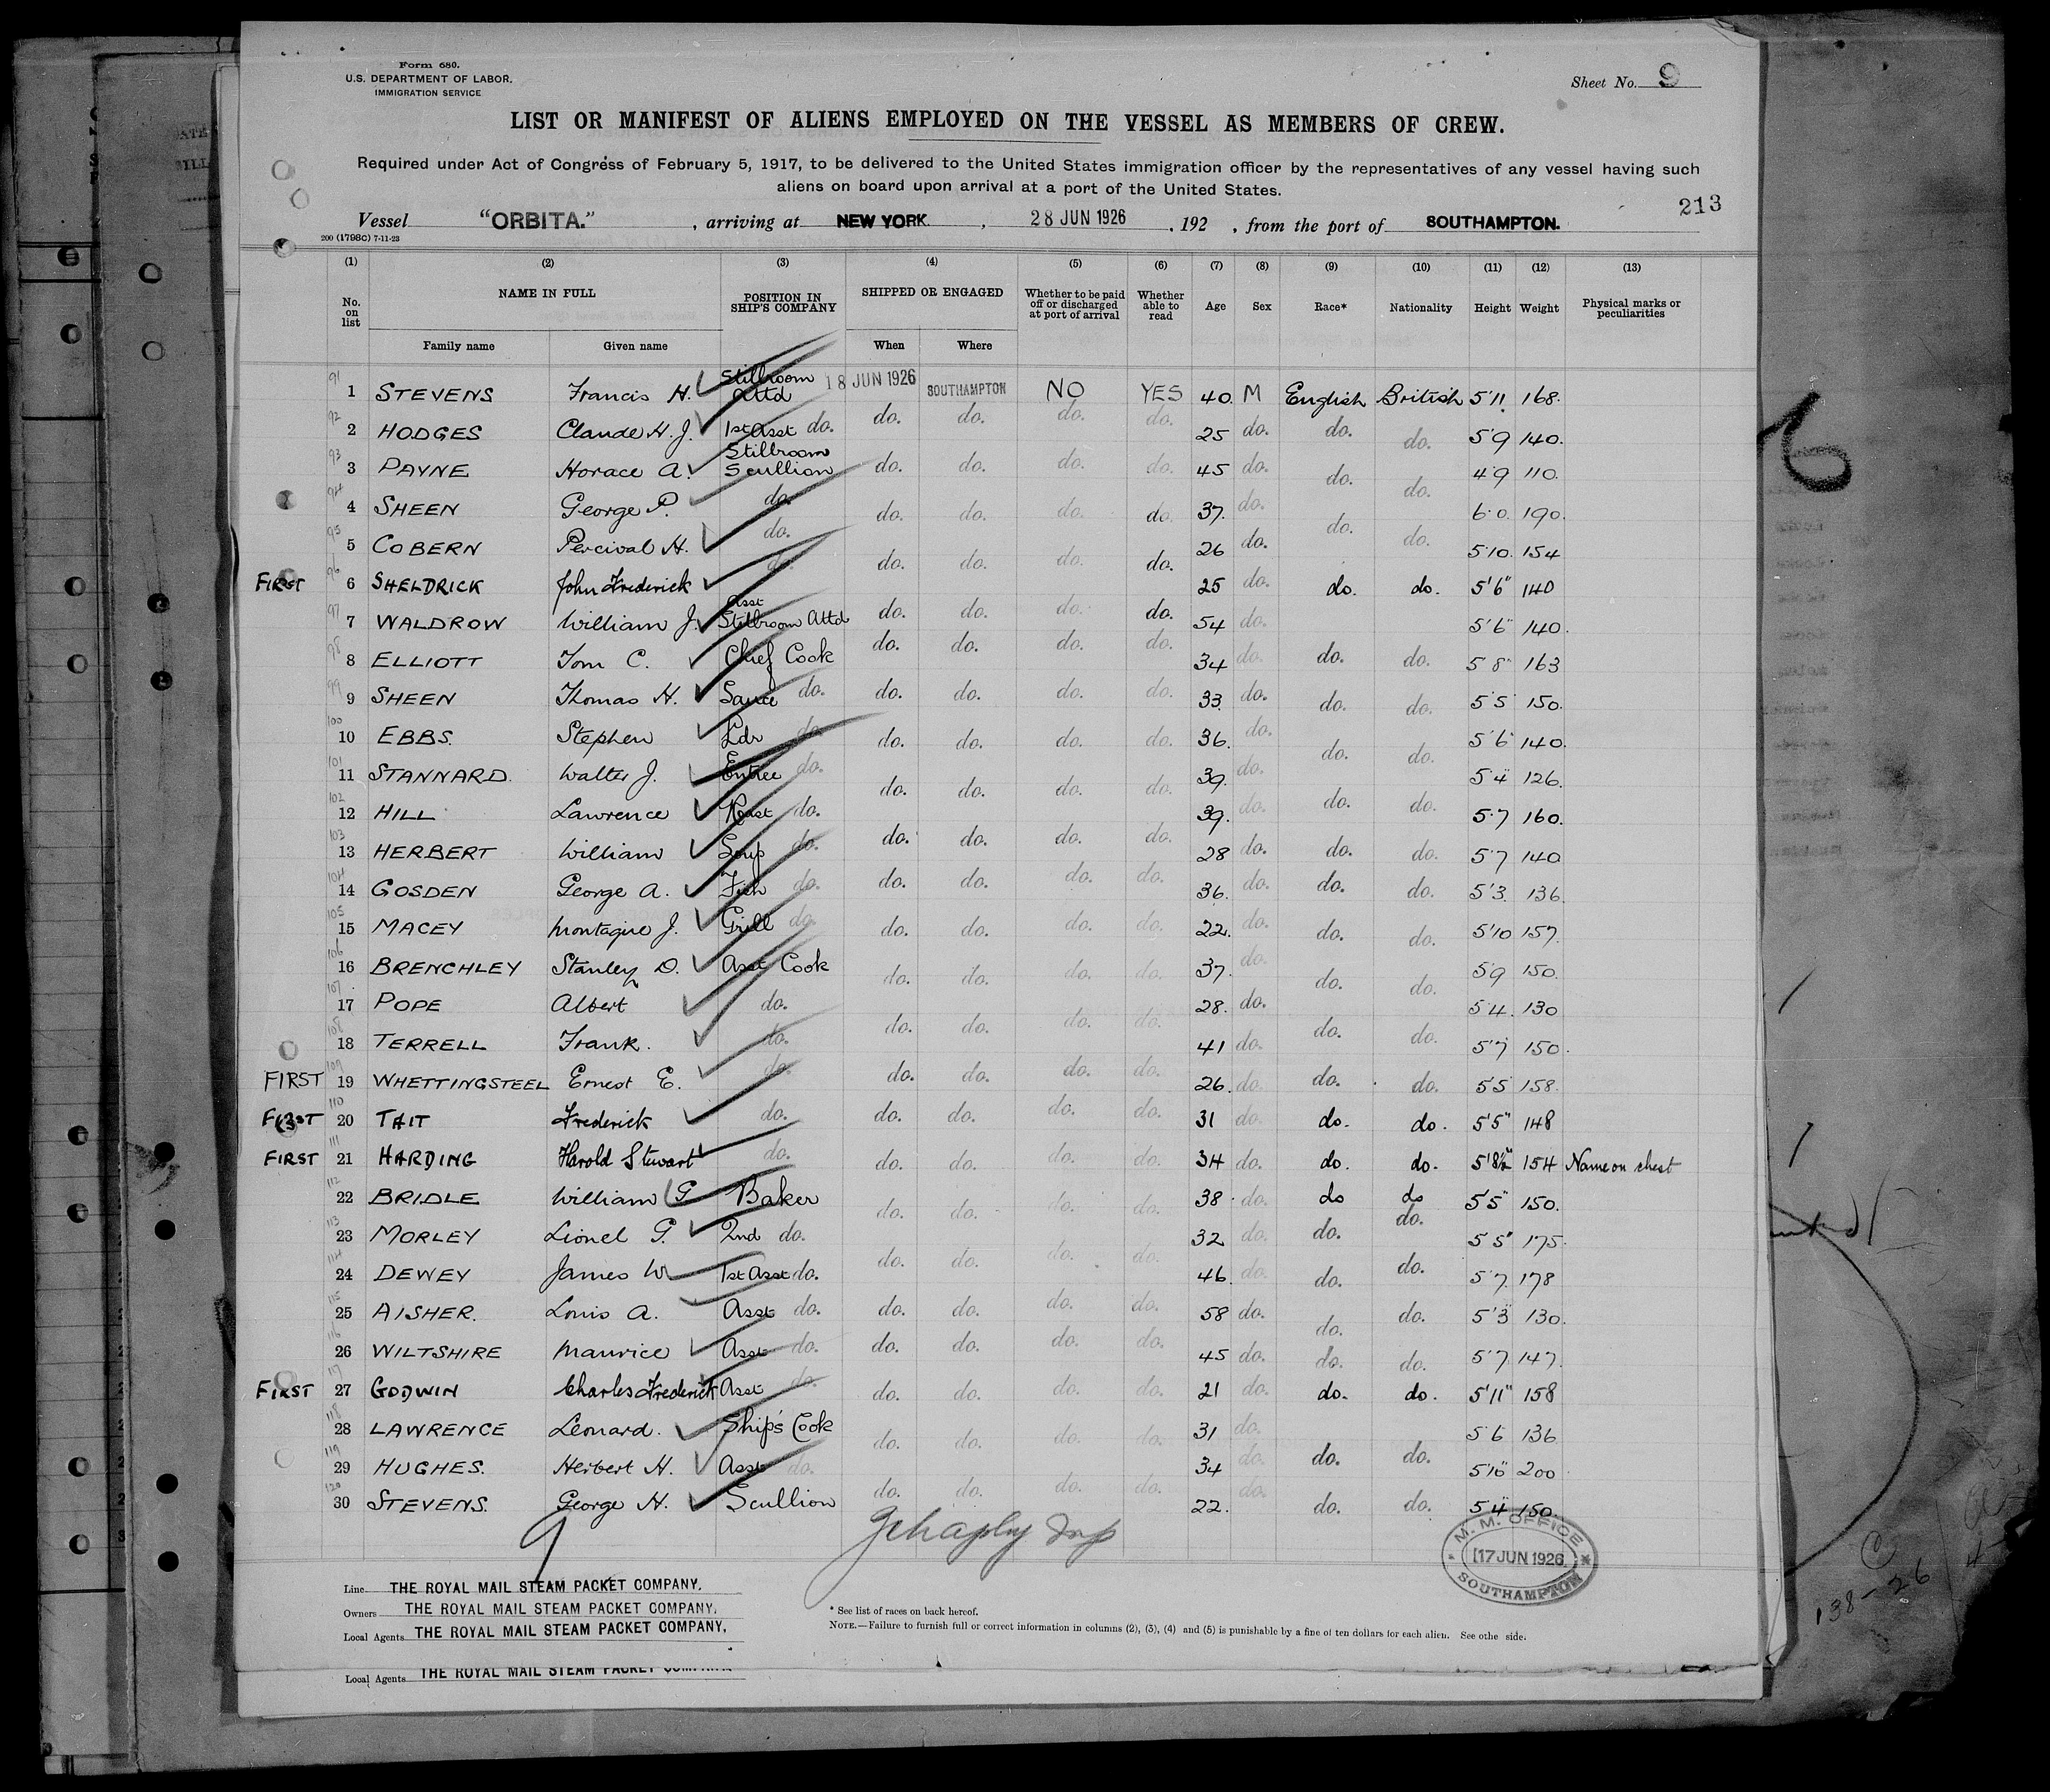 Form 680.
U.S. DEPARTMENT OF LABOR.
IMMIGRATION SERVICE
Sheet No. 9
LIST OR MANIFEST OF ALIENS EMPLOYED ON THE VESSEL AS MEMBERS OF CREW.
Required under Act of Congress of February 5, 1917, to be delivered to the United States immigration officer by the representatives of any vessel having such
aliens on board upon arrival at a port of the United States.
213
Vessel "ORBITA." , arriving at NEW YORK. , 28 JUN 1926 , 192 , from the port of SOUTHAMPTON.
200 (1798c) 7-11-23
(1) (2) (3) (4) (5) (6) (7) (8) (9) (10) (11) (12) (13)
No. on list NAME IN FULL POSITION IN SHIP'S COMPANY SHIPPED OR ENGAGED Whether to be paid off or discharged at port of arrival Whether able to read Age Sex Race* Nationality Height Weight Physical marks or peculiarities
Family name Given name When Where
91 1 STEVENS Francis H. Stillroom Attd 18 JUN 1926 SOUTHAMPTON NO YES 40. M English British 5'11 168.
92 2 HODGES Claude H. J. 1st Asst do. do. do. do. do. 25 do. do. do. 5'9 140.
93 3 PAYNE Horace A. Stillroom Scullion do. do. do. do. 45 do. do. do. 4'9 110.
94 4 SHEEN George P. do. do. do. do. do. 37. do. do. do. 6'0. 190.
95 5 COBERN Percival H. do. do. do. do. do. 26 do. 5'10. 154
FIRST 96 6 SHELDRICK John Frederick do. do. do. do. do. 25 do. do. do. 5'6" 140
97 7 WALDROW William J. Asst Stillroom Attd do. do. do. do. 54 do. 5'6" 140.
98 8 ELLIOTT Tom C. Chief Cook do. do. do. do. 34 do. do. do. 5'8" 163
99 9 SHEEN Thomas H. Sauce do. do. do. do. do. 33. do. do. do. 5'5 150.
100 10 EBBS. Stephen Ldr do. do. do. do. do. 36. do. do. do. 5'6" 140.
101 11 STANNARD. Walter J. Entree do. do. do. do. do. 39. do. do. do. 5'4" 126.
102 12 HILL Lawrence Roast do. do. do. do. do. 39. do. 5'7 160.
103 13 HERBERT William Soup do. do. do. do. do. 28 do. do. do. 5'7 140
104 14 GOSDEN George A. Fish do. do. do. do. do. 36. do. do. do. 5'3. 136.
105 15 MACEY Montague J. Grill do. do. do. do. do. 22. do. do. do. 5'10 157.
106 16 BRENCHLEY Stanley D. Asst Cook do. do. do. do. 37. do. do. do. 5'9 150.
107 17 POPE Albert do. 28. do. 5'4. 130
108 18 TERRELL Frank. do. do. do. do. do. 41 do. do. do. 5'7 150.
FIRST 109 19 WHETTINGSTEEL Ernest E. do. do. do. do. do. 26. do. do. do. 5'5 158.
FIRST 110 20 TAIT Frederick do. do. do. do. do. 31 do. do. do. 5'5" 148
FIRST 111 21 HARDING Harold Stewart do. do. do. do. do. 34 do. do. do. 5'8½" 154 Name on chest
112 22 BRIDLE William G Baker do. do. do. do. 38 do. do do 5'5" 150.
113 23 MORLEY Lionel G. 2nd do. do. do. do. do. 32 do. do. do. 5'5" 175.
114 24 DEWEY James W 1st Asst do. 46. do. do. do. 5'7. 178
115 25 AISHER. Louis A. Asst do. do. do. do. do. 58 do. do. do. 5'3" 130.
116 26 WILTSHIRE Maurice Asst do. do. do. do. do. 45 do. do. do. 5'7. 147.
FIRST 117 27 GODWIN Charles Frederick Asst do. do. do. do. do. 21 do. do. do. 5'11" 158
118 28 LAWRENCE Leonard. Ship's Cook do. do. do. do. 31 do. 5'6 136
119 29 HUGHES. Herbert H. Asst do. 34 do. do. do. 5'10" 200
120 30 STEVENS. George H. Scullion do. do. do. do. 22. do. do. do. 5'4" 150.
9
M. M. OFFICE
17 JUN 1926
SOUTHAMPTON
Line THE ROYAL MAIL STEAM PACKET COMPANY.
Owners THE ROYAL MAIL STEAM PACKET COMPANY.
Local Agents THE ROYAL MAIL STEAM PACKET COMPANY.
* See list of races on back hereof.
NOTE.—Failure to furnish full or correct information in columns (2), (3), (4) and (5) is punishable by a fine of ten dollars for each alien. See othe side.
Local Agents THE ROYAL MAIL STEAM PACKET
138-26